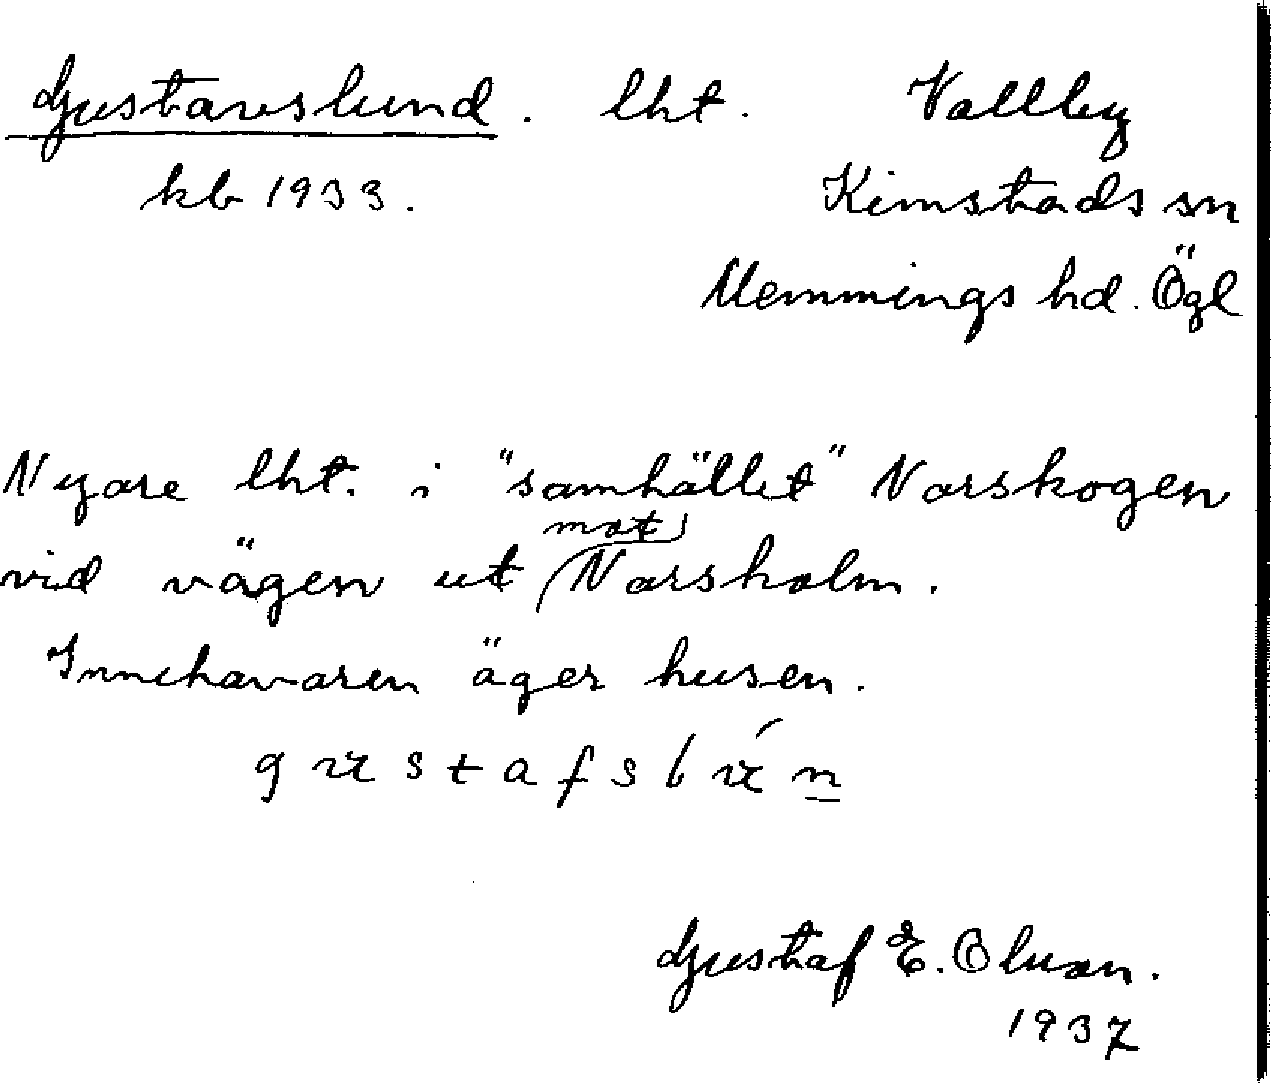 Gustavslund. lht. Vallby
kb 1933. Kimstads sn
Memmings hd. Ögl
Nyare lht. i "samhället" Norskogen
vid vägen ut mot Norsholm.
Innehavaren äger husen.
Gustaf E. Olson.
1937